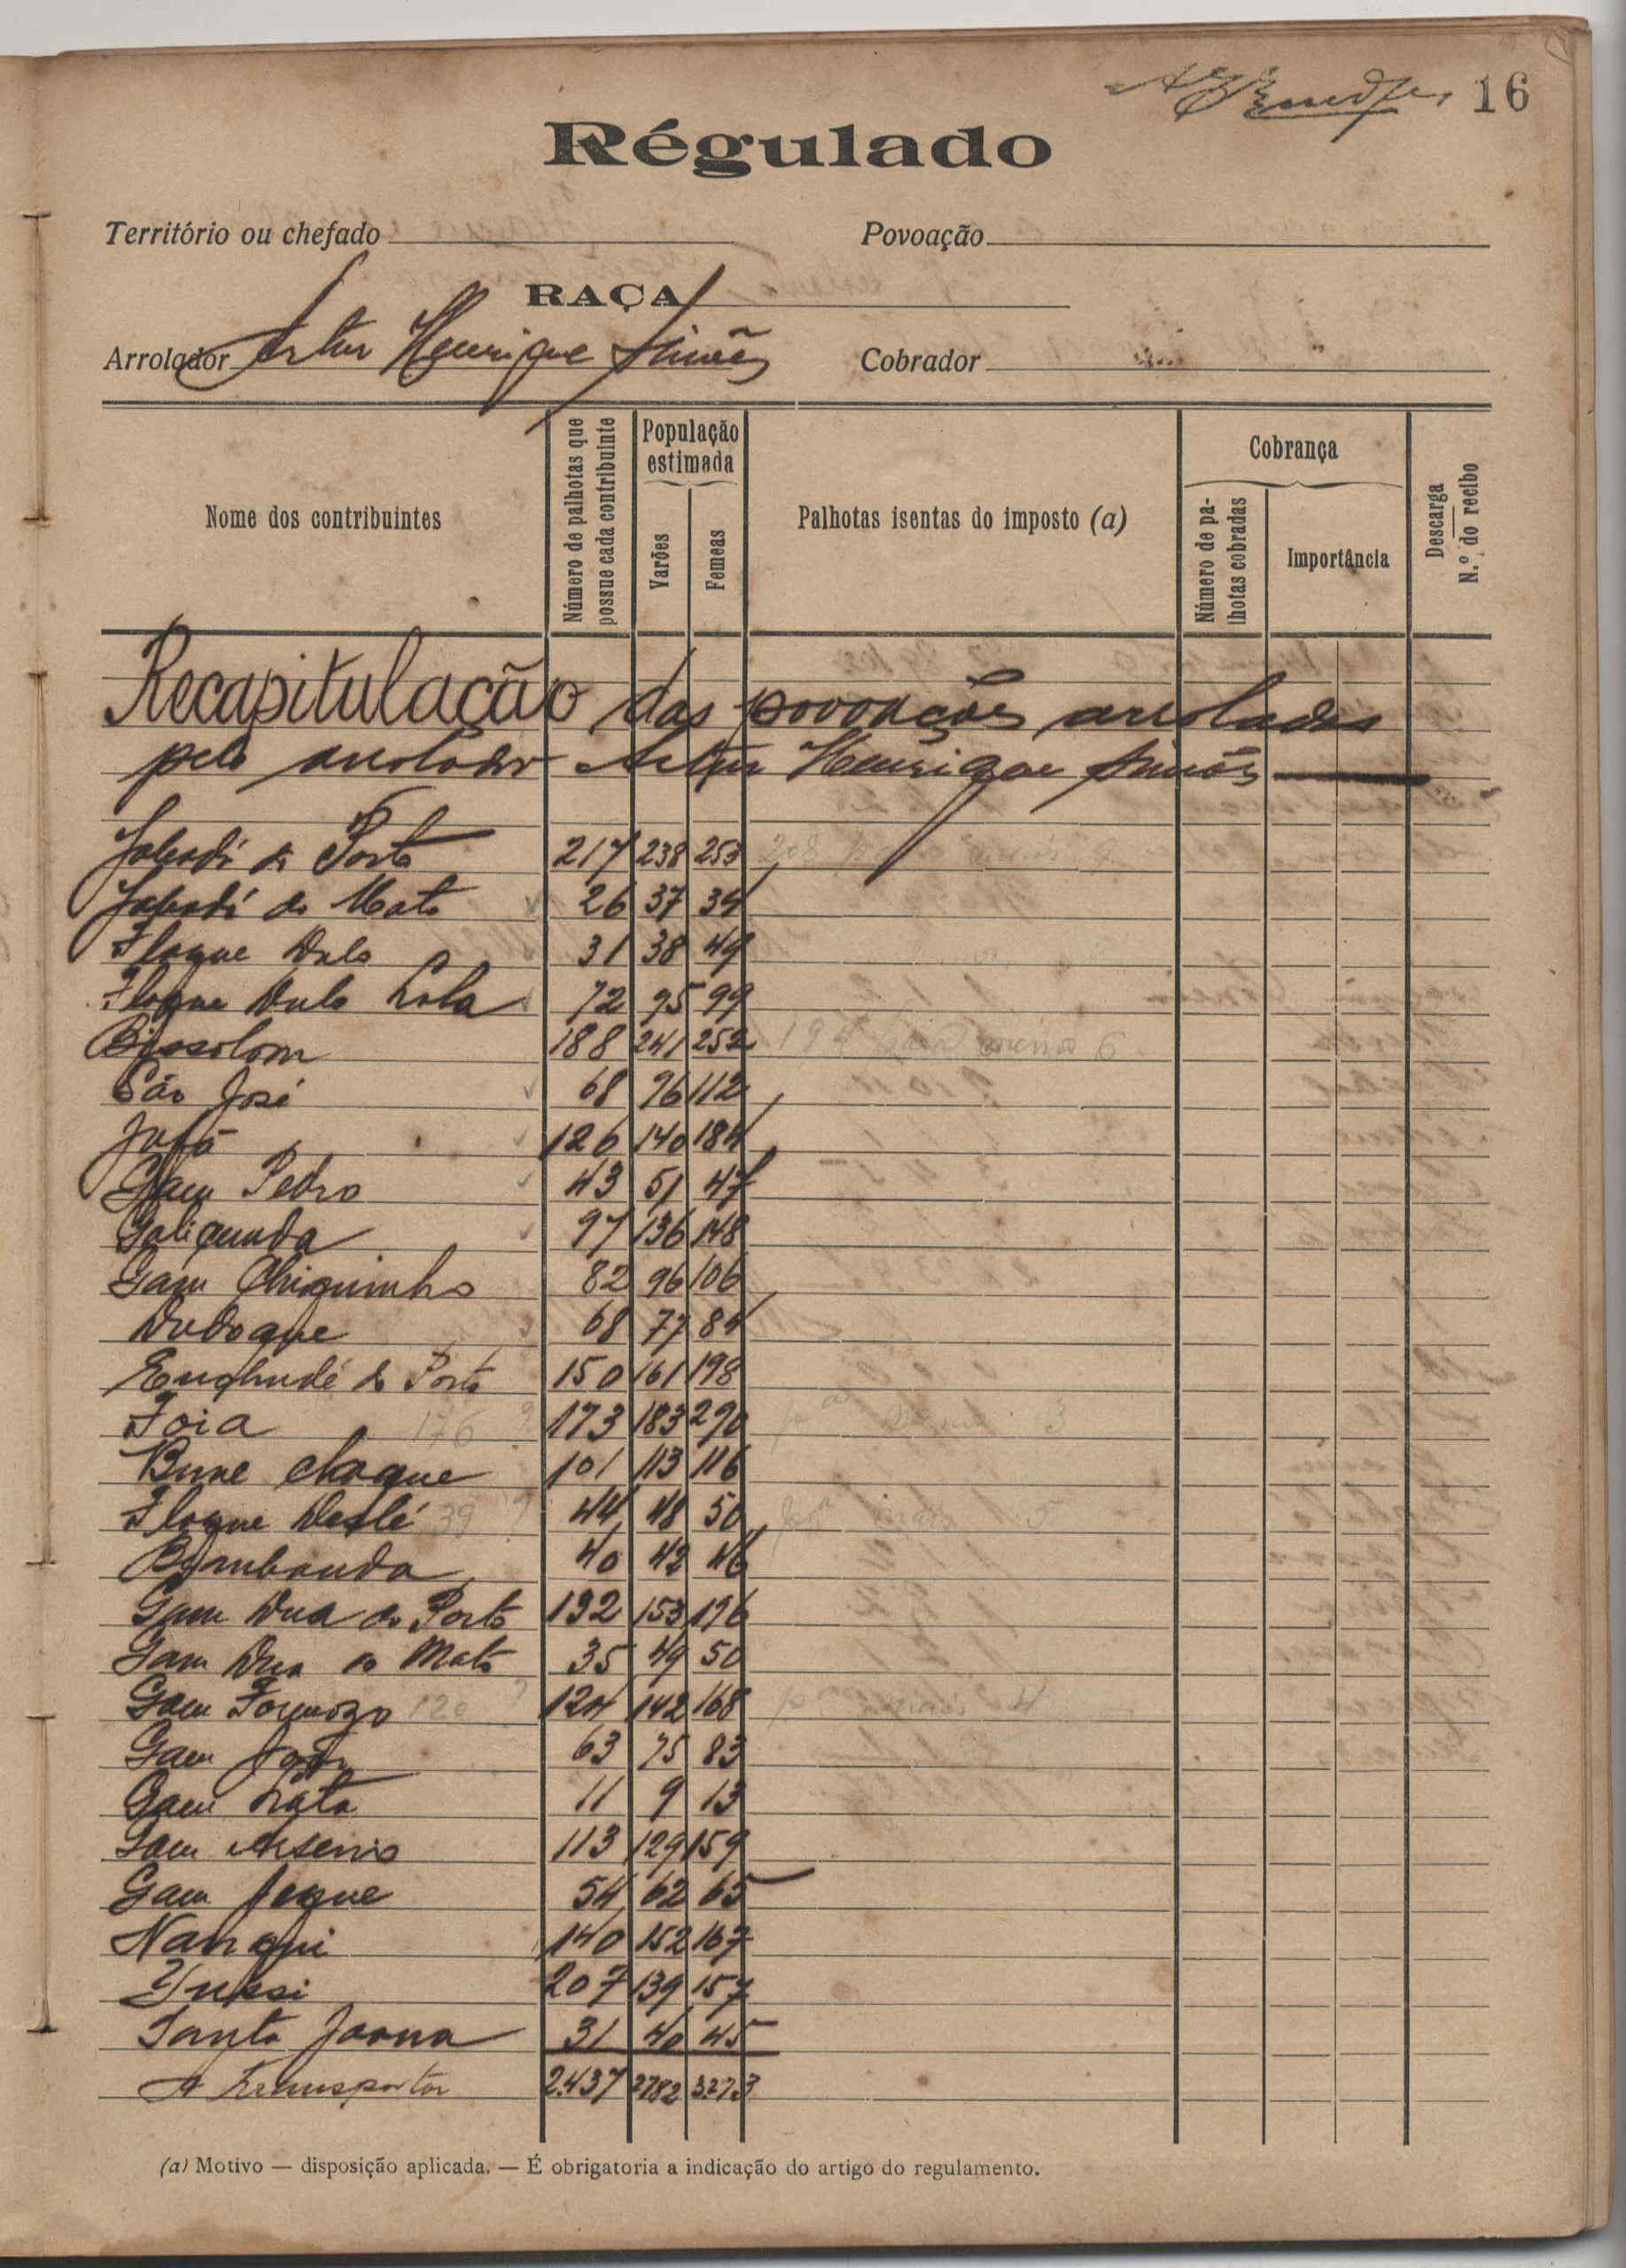 16
Régulado
Território ou chefado
Povoação
RAÇA
Arrolador Artur Henrique Simões
Cobrador
Nome dos contribuintes
Número de palhotas que possue cada contribuinte
População estimada
Varões
Femeas
Palhotas isentas do imposto (a)
Cobrança
Número de palhotas cobradas
Importância
Descarga
N.º do recibo
Recapitulação das povoações arroladas
pelo arrolador Artur Henrique Simões
Jabadá do Porto 217 238 253 208
Jabadá do Mato 26 37 39
Flaque Dulo 31 38 49
Flaque Dulo Lala 72 95 99
Bissolom 188 241 252 194 menos 6
São José 68 96 112
126 140 184
Gam Pedro 43 51 47
Galiçunda 97 136 148
Gam Chiquinho 82 96 106
Dudoque 68 77 84
Enchudé do Porto 150 161 198
Foia 176 ? 173 183 290 menos 3
Bune chaque 101 113 116
Flaque 39 ? 44 48 50 mais 5
Bambauda 40 42 46
Gam Dua do Porto 132 153 196
Gam Dua do Mato 35 49 50
Gam Formozo 120 ? 124 142 168 mais 4
Gam 63 75 83
Gam Lata 11 9 13
Gam Arsenio 113 129 159
Gam Jeque 54 62 65
Nanqui 140 152 167
207 139 157
Santa Joana 31 40 45
A Transportar 2.437 2782 3.273
(a) Motivo — disposição aplicada. — É obrigatoria a indicação do artigo do regulamento.